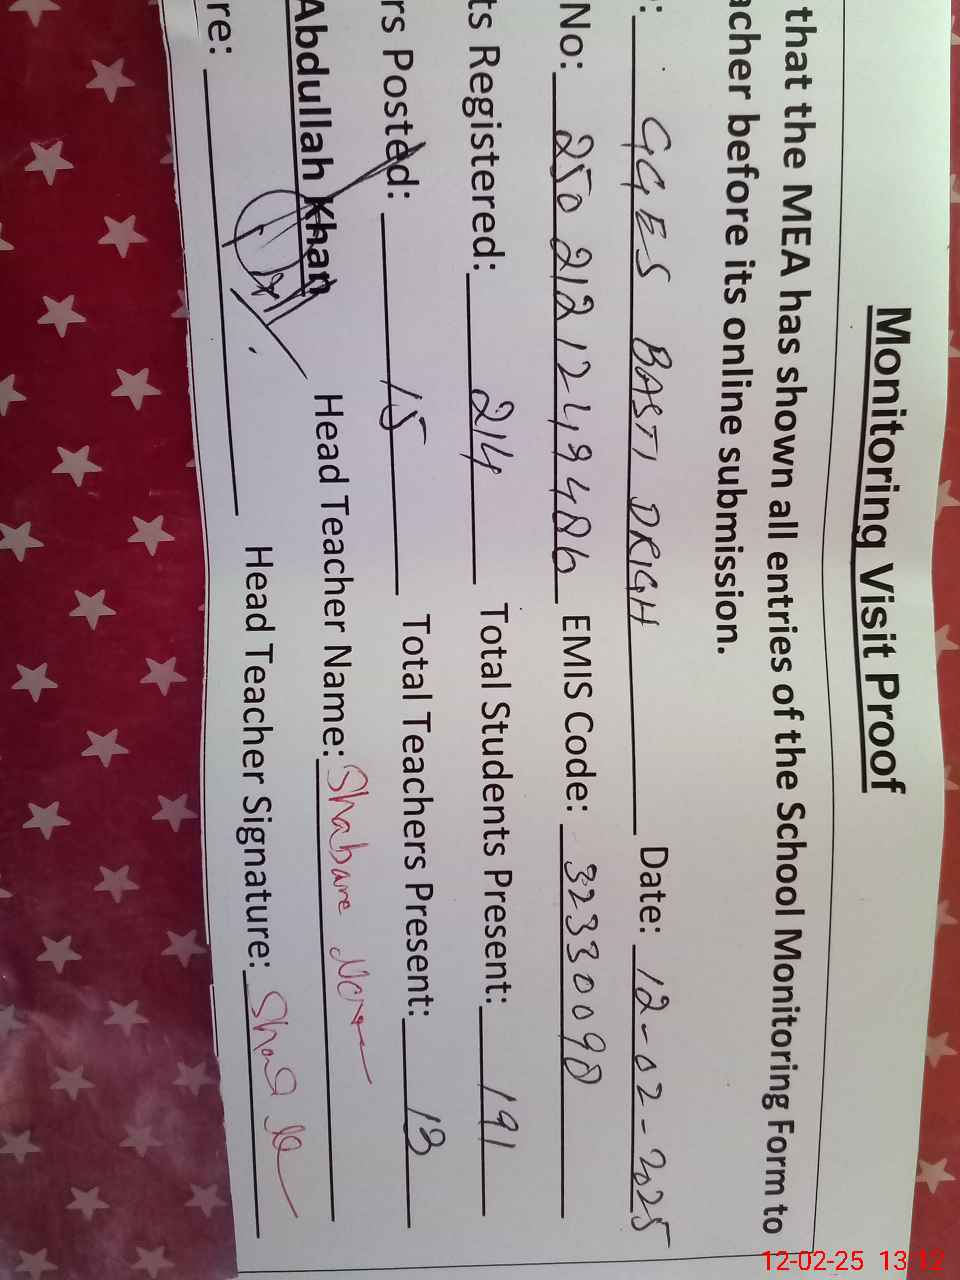 Monitoring Visit Proof
that the MEA has shown all entries of the School Monitoring Form to
acher before its online submission.
: GGES BASTI DRIGH Date: 12-02-2025
No: 250 212 124,9486 EMIS Code: 32330098
ts Registered: 214 Total Students Present: 191
rs Posted: 15 Total Teachers Present: 13
Abdullah Khan Head Teacher Name: Shabana
re: Head Teacher Signature:
12-02-25 13:12